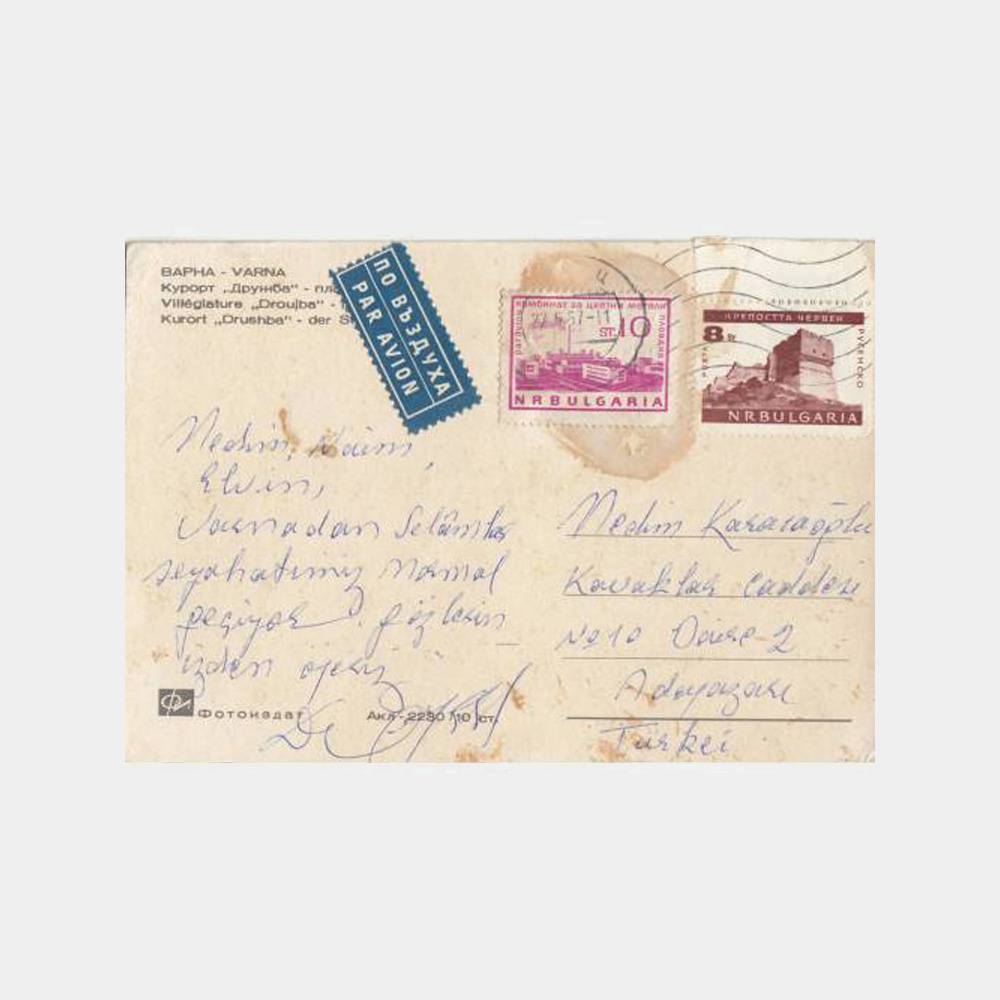 ВАРНА - VARNA
Курорт „Дружба" -
Villégiature „Droujba" -
Kurort „Drushba" - der
ПО ВЪЗДУХА
PAR AVION
КОМБИНАТ ЗА ЦВЕТНИ МЕТАЛИ
ПЛОВДИВ
ST. 10
NRBULGARIA
КРЕПОСТТА ЧЕРВЕН
РУСЕНСКО
8 ST
ПОЩА
NRBULGARIA
Nedim, Naim,
Elvin,
Varnadan Selâmlar
seyahatımız normal
geçiyor. gözlerin
izden öperiz
Nedim Karaca
Kavaklar Caddesi
No 10 Daire 2
Adapazarı
Türkei
Фотоиздат
Акл-2230/10 ст.